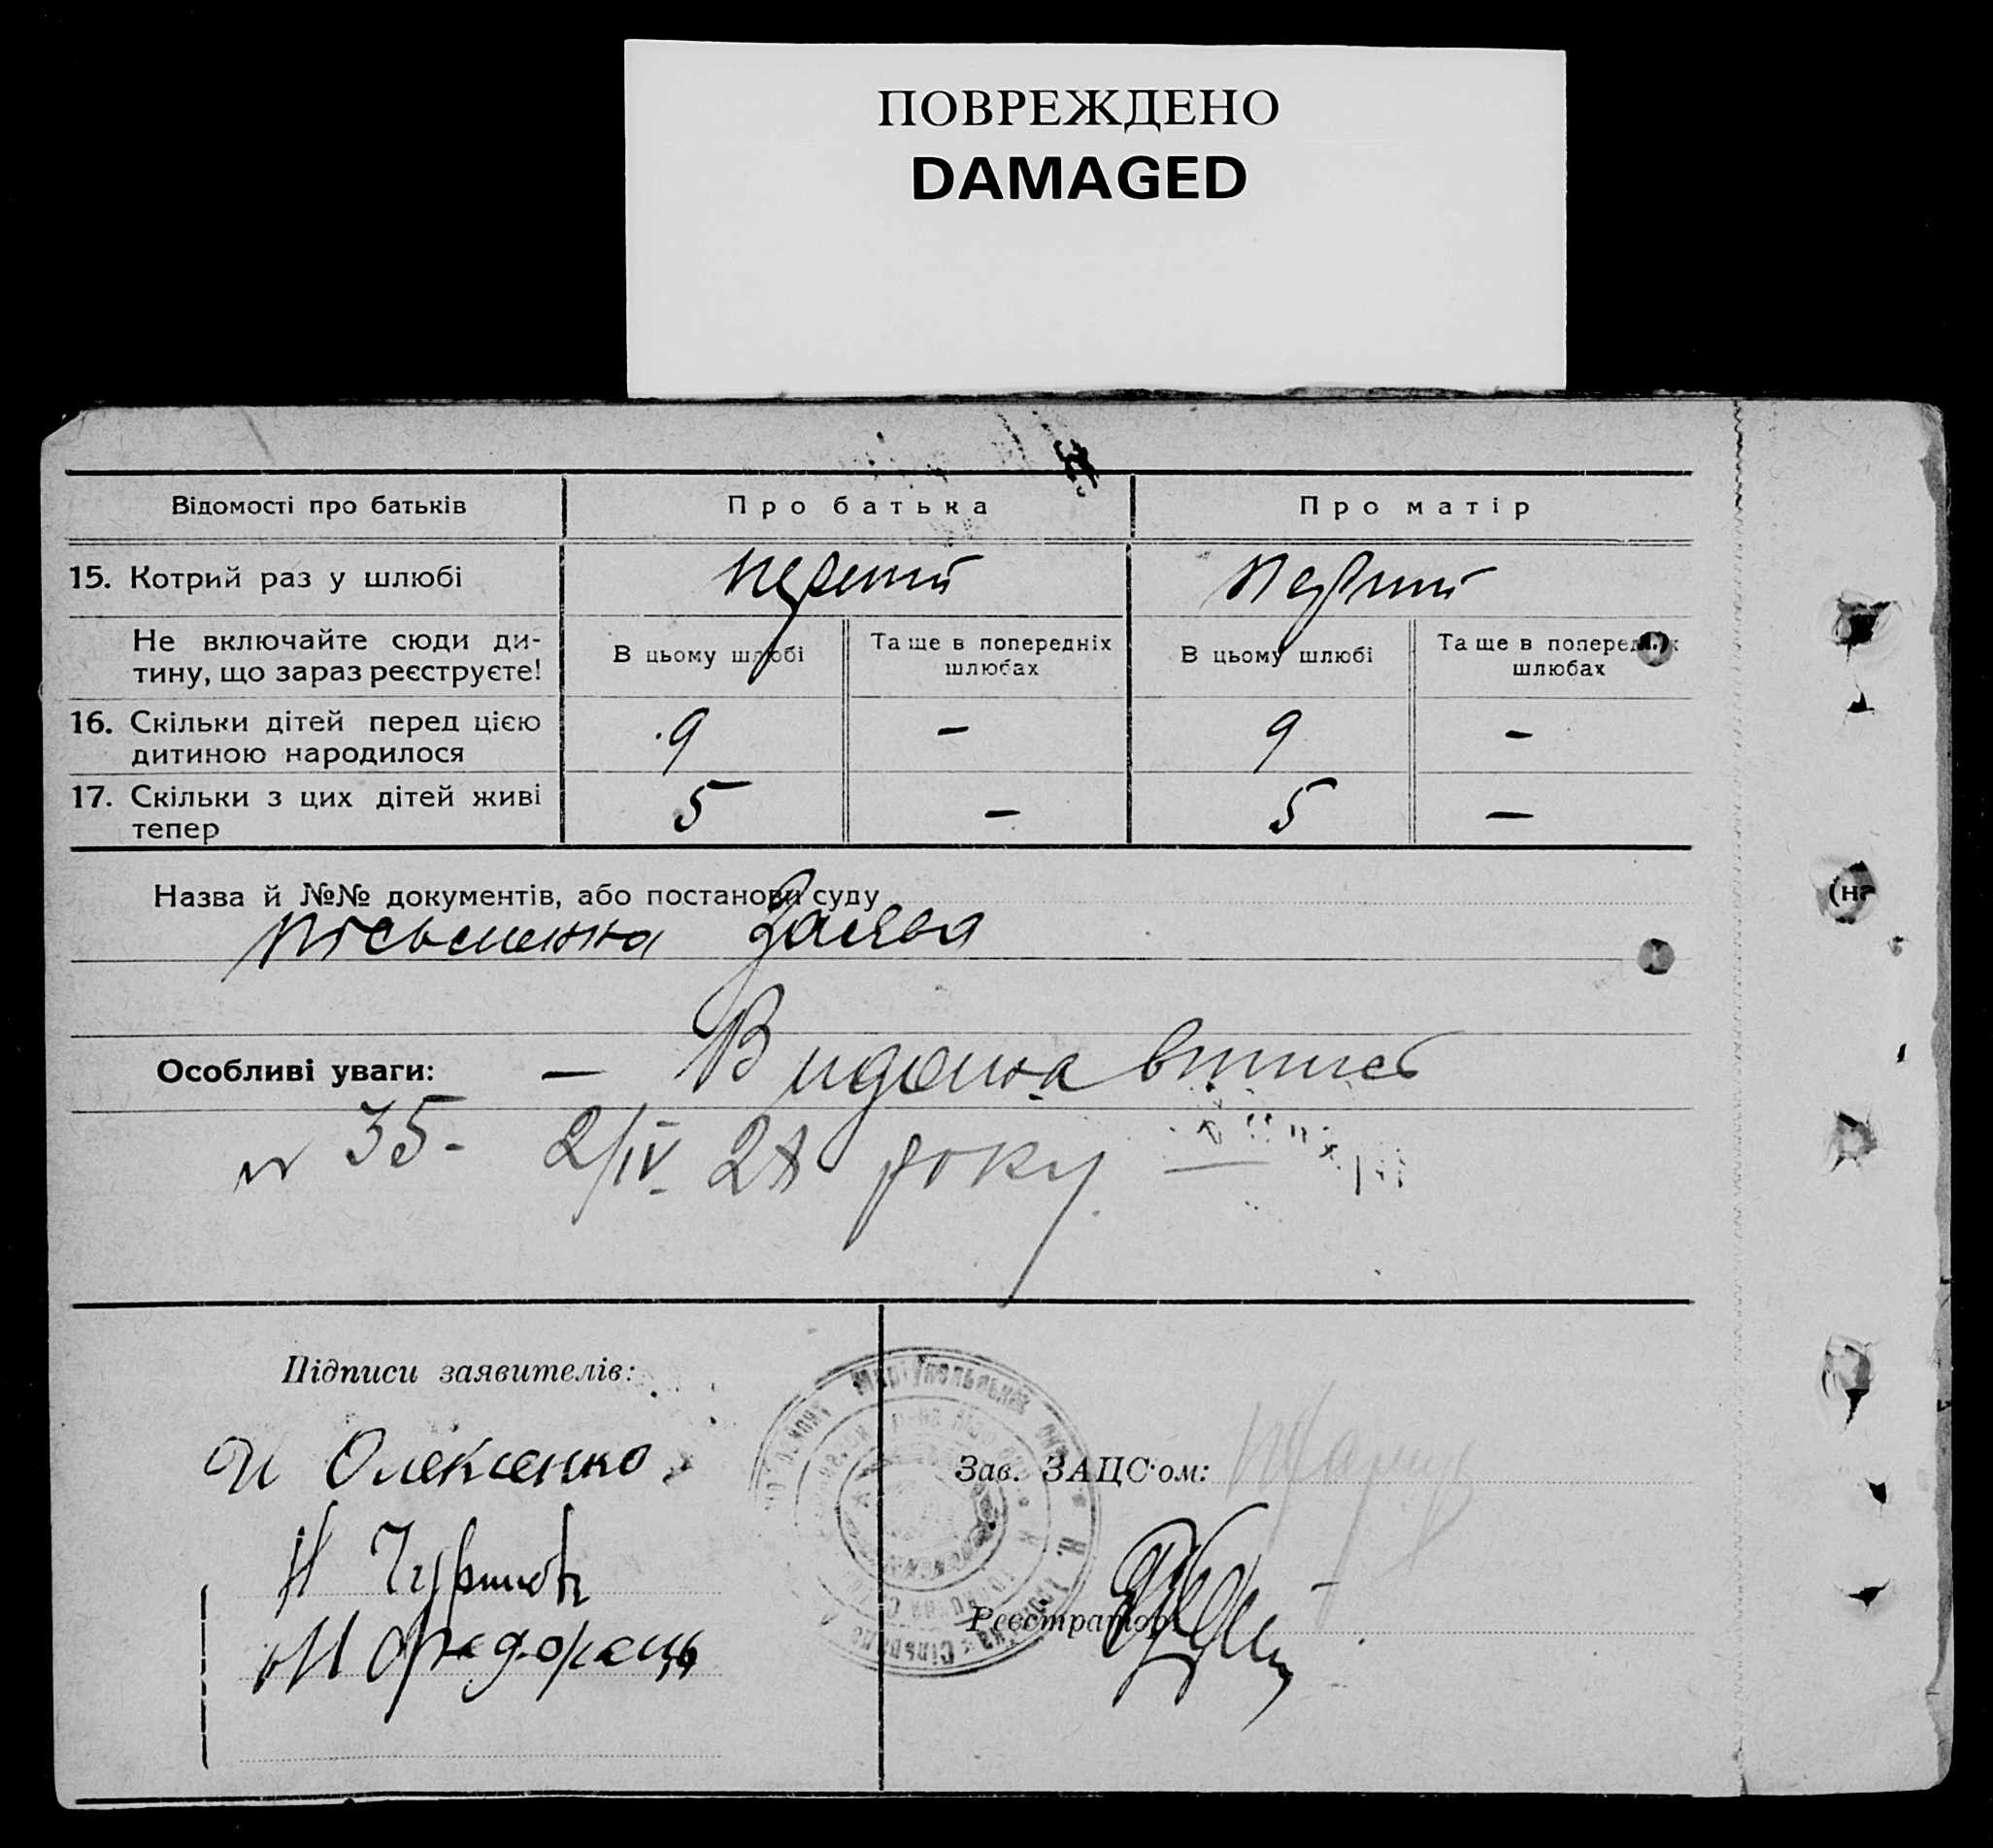 ПОВРЕЖДЕНО
DAMAGED
Відомості про батьків
Про батька
Про матір
15. Котрий раз у шлюбі
перший
перший
Не включайте сюди ди-
тину, що зараз реєструєте!
В цьому шлюбі
Та ще в попередніх
шлюбах
В цьому шлюбі
Та ще в попередніх
шлюбах
16. Скільки дітей перед цією
дитиною народилося
9
–
9
–
17. Скільки з цих дітей живі
тепер
5
–
5
–
Назва й №№ документів, або постанови суду
Письменна Заява
Особливі уваги: –
№ 35- 2/IV 28 року
Підписи заявителів:
Олексенко
Зав. ЗАЦС'ом:
Реєстратор